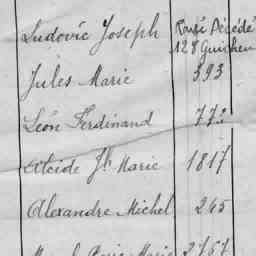 Ludovic Joseph Rayé Décédé
128 Guichen
Jules Marie 593
Léon Ferdinand 772
Alcide Jh Marie 1817
Alexandre Michel 245
Marie 2767